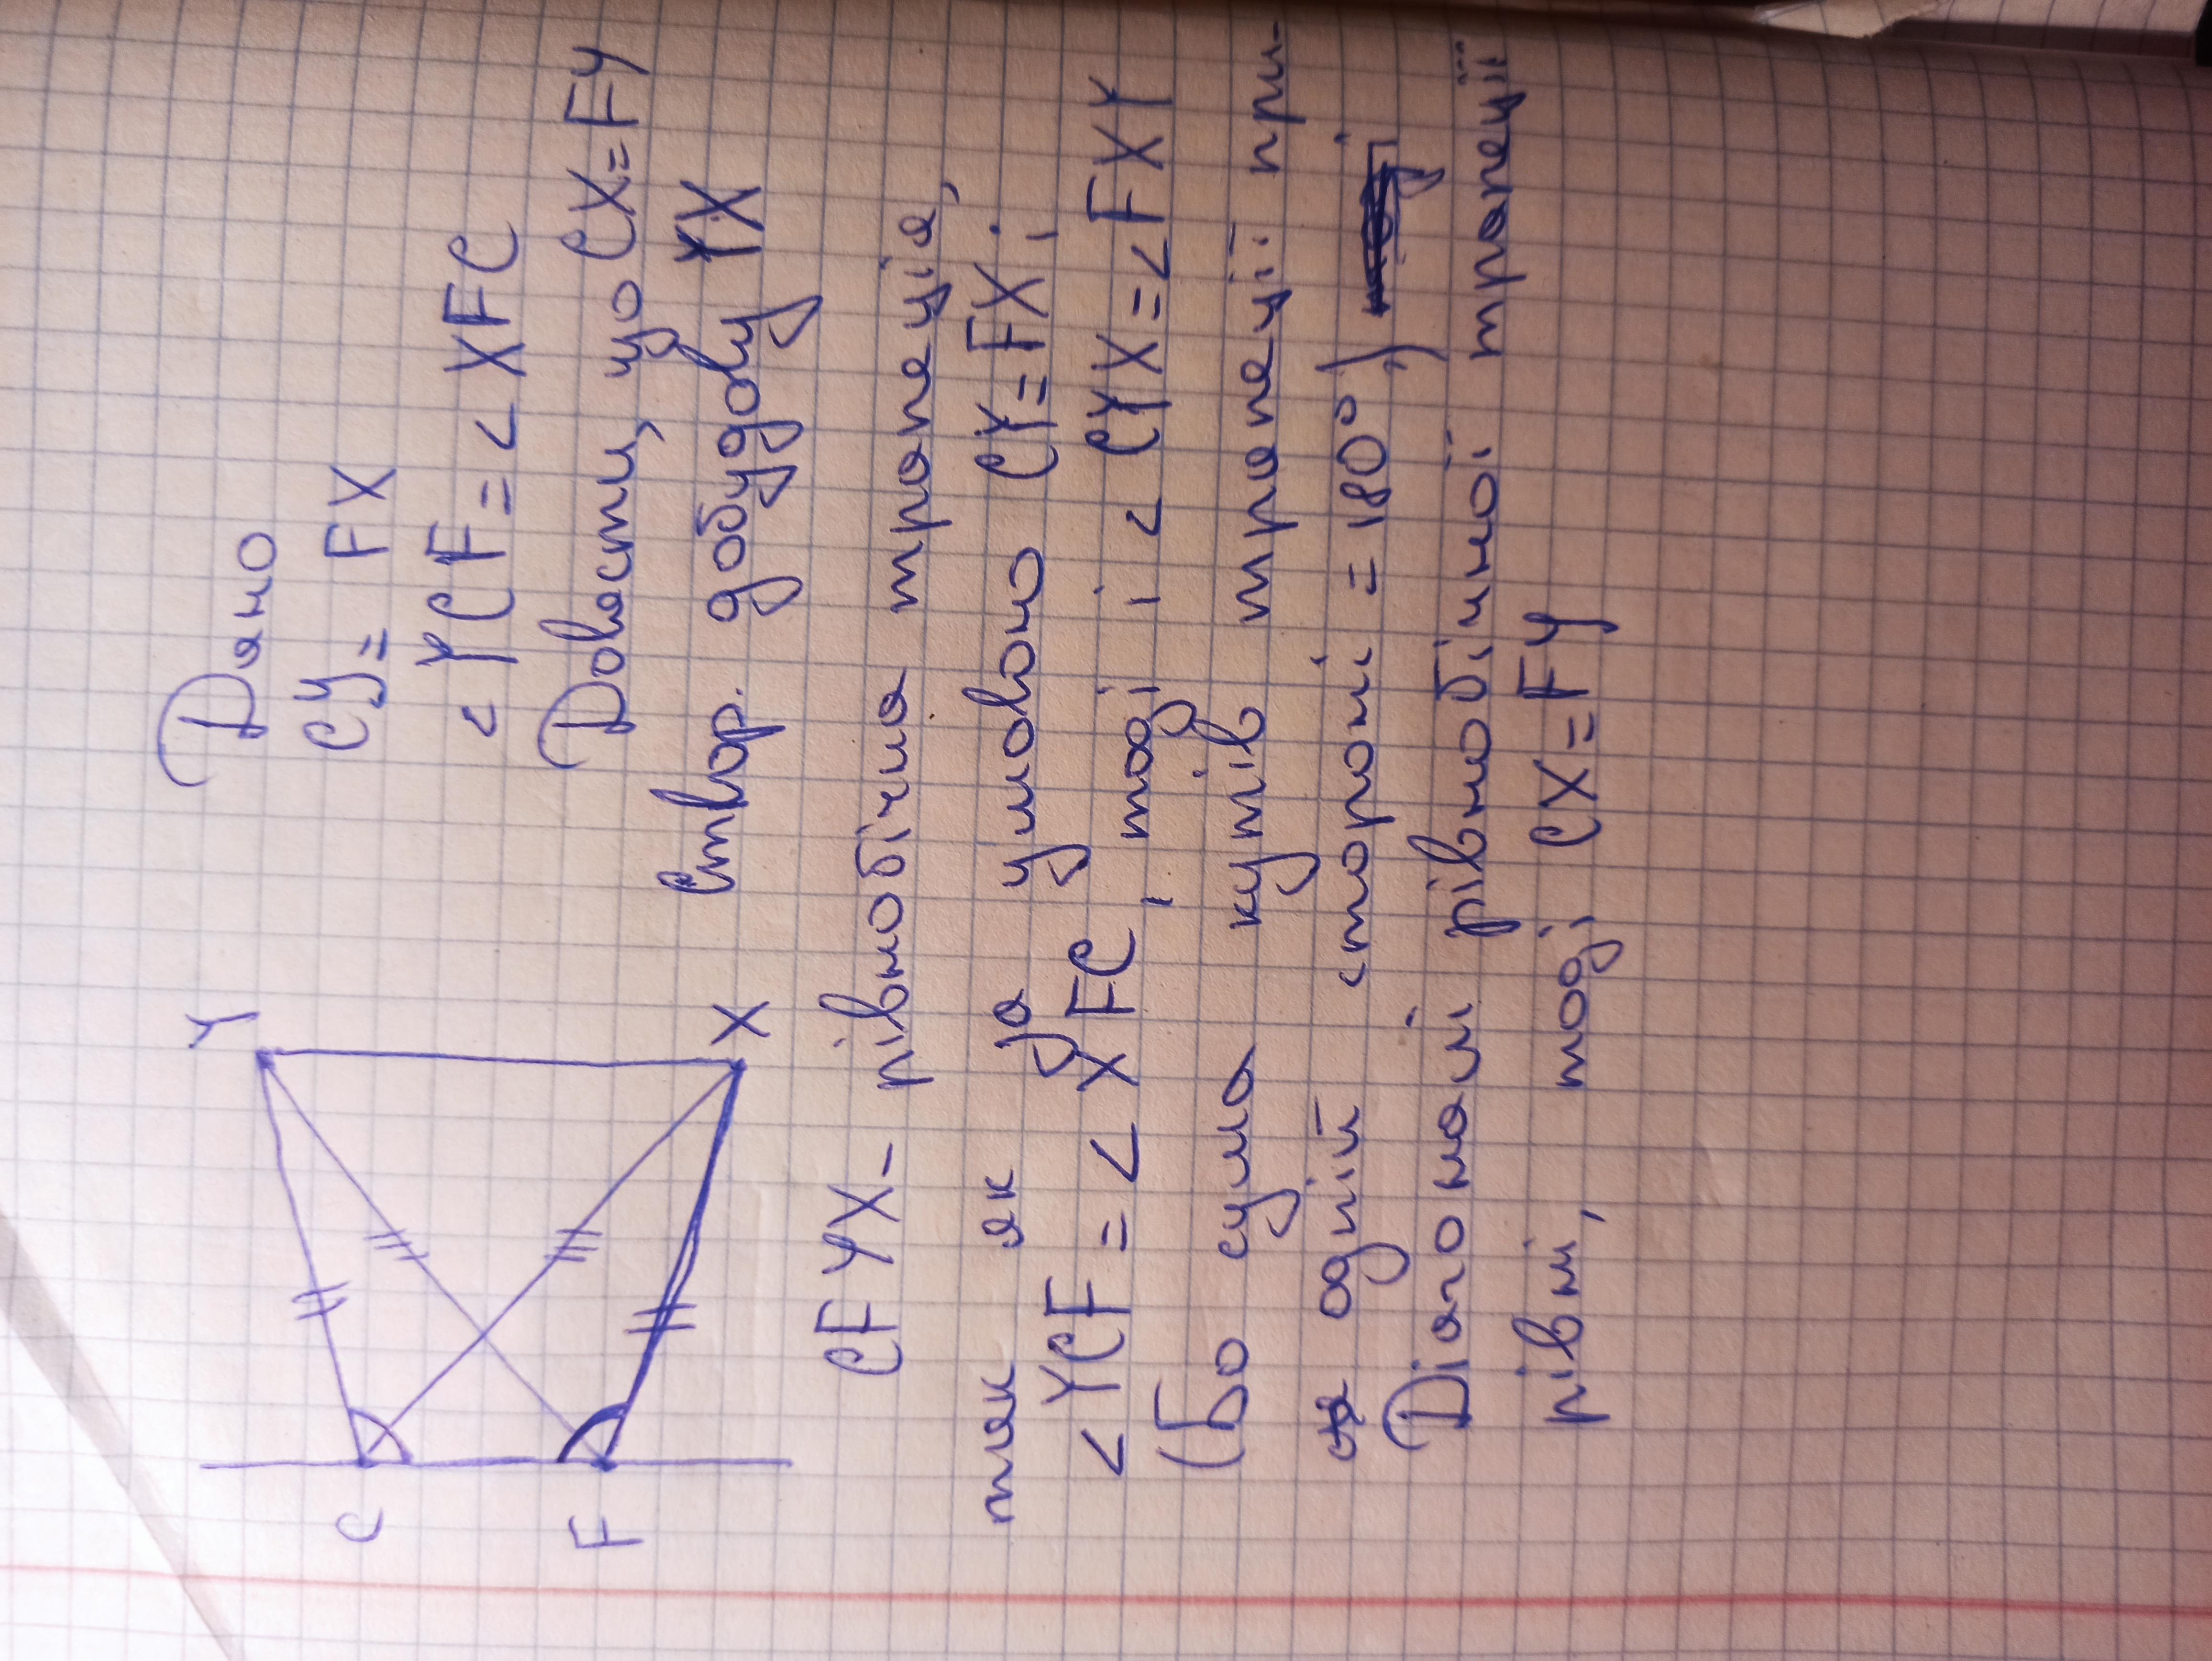 Дано
CY = FX
< YCF = < XFC
Довести, що CX = FY
Створ. добудову YX
Y
X
C
F
CFYX - рівнобічна трапеція,
так як за умовою CY = FX і
< YCF = < XFC, тоді і < CYX = < FXY
(Бо сума кутів трапеції при-
одній стороні = 180°)
Діагоналі рівнобічної трапеції
рівні, тоді CX = FY